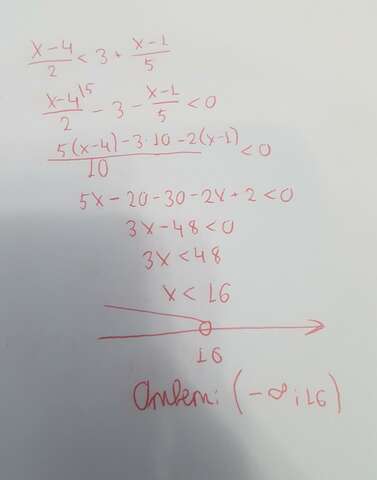 x-4/2 < 3 + x-1/5
x-4\5/2 - 3 - x-1/5 < 0
5(x-4)-3·10-2(x-1)/10 < 0
5x-20-30-2x+2<0
3x-48<0
3x<48
x<16
16
Ответ: (-∞;16)